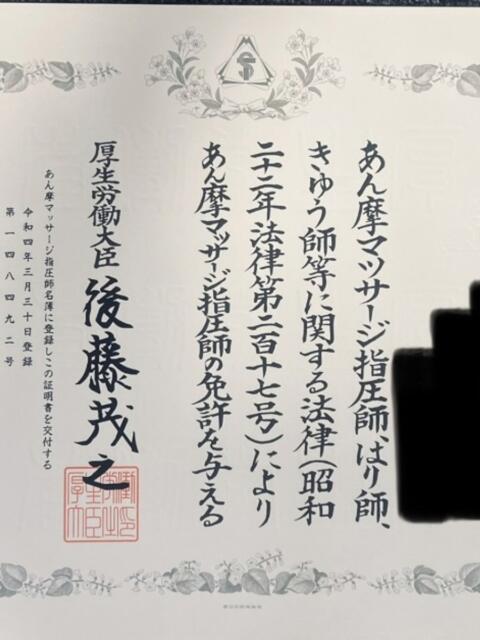 あん摩マツサージ指圧師、はり師、
きゆう師等に関する法律（昭和
二十二年法律第二百十七号）により
あん摩マツサージ指圧師の免許を与える
厚生労働大臣 後藤茂之
あん摩マツサージ指圧師名簿に登録しこの証明書を交付する
令和四年三月三十日登録
第一四八四九二号